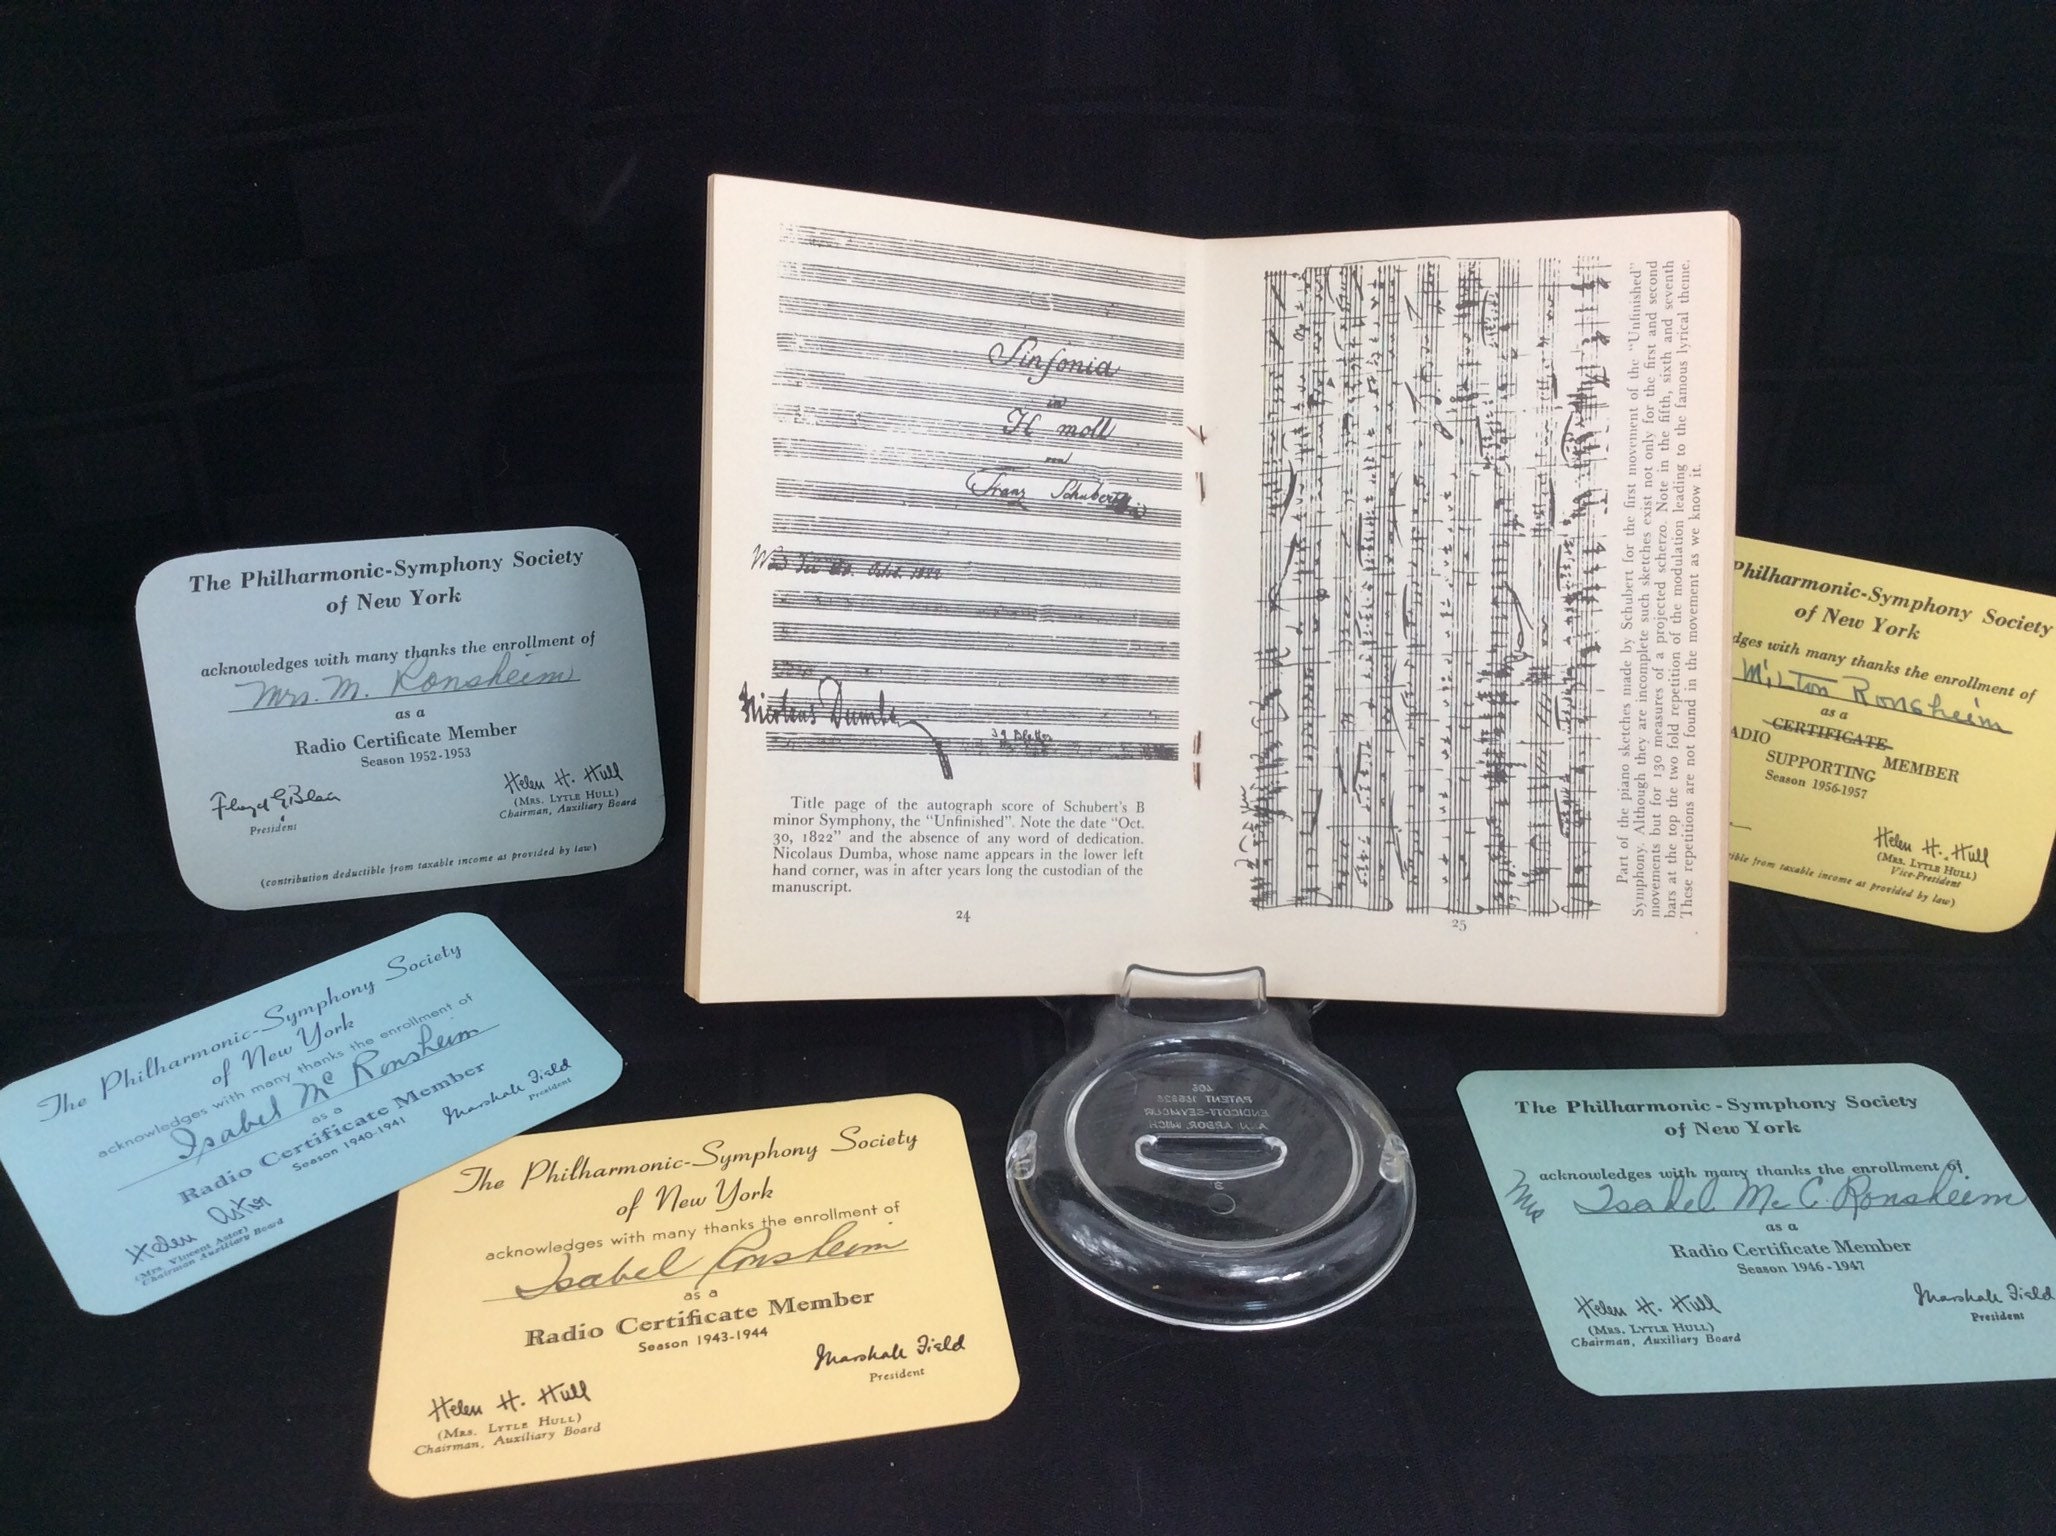 The Philharmonic-Symphony Society
of New York
acknowledges with many thanks the enrollment of
Mrs. M. Ronsheim
as a
Radio Certificate Member
Season 1952-1953
Floyd G. Blair
President
Helen H. Hull
(MRS. LYTLE HULL)
Chairman, Auxiliary Board
(contribution deductible from taxable income as provided by law)
The Philharmonic-Symphony Society
of New York
acknowledges with many thanks the enrollment of
Isabel Mc Ronsheim
as a
Radio Certificate Member
Season 1940-1941
Marshall Field
President
Helen Astor
(Mrs. Vincent Astor)
Chairman Auxiliary Board
The Philharmonic-Symphony Society
of New York
acknowledges with many thanks the enrollment of
Isabel Ronsheim
as a
Radio Certificate Member
Season 1943-1944
Marshall Field
President
Helen H. Hull
(MRS. LYTLE HULL)
Chairman, Auxiliary Board
Sinfonia
in
H moll
von
Franz Schubert
Nicolaus Dumba
Title page of the autograph score of Schubert's B
minor Symphony, the "Unfinished". Note the date "Oct.
30, 1822" and the absence of any word of dedication.
Nicolaus Dumba, whose name appears in the lower left
hand corner, was in after years long the custodian of the
manuscript.
24
Part of the piano sketches made by Schubert for the first movement of the "Unfinished"
Symphony. Although they are incomplete such sketches exist not only for the first and second
movements but for 130 measures of a projected scherzo. Note in the fifth, sixth and seventh
bars at the top the two fold repetition of the modulation leading to the famous lyrical theme.
These repetitions are not found in the movement as we know it.
25
PATENT
ENDICOTT-SEYMOUR
ANN ARBOR, MICH
3
Philharmonic-Symphony Society
of New York
dges with many thanks the enrollment of
Milton Ronsheim
as a
CERTIFICATE
ADIO MEMBER
SUPPORTING
Season 1956-1957
Helen H. Hull
(MRS. LYTLE HULL)
Vice-President
ible from taxable income as provided by law)
The Philharmonic-Symphony Society
of New York
acknowledges with many thanks the enrollment of
Mrs Isabel Mc C. Ronsheim
as a
Radio Certificate Member
Season 1946-1947
Helen H. Hull
(MRS. LYTLE HULL)
Chairman, Auxiliary Board
Marshall Field
President